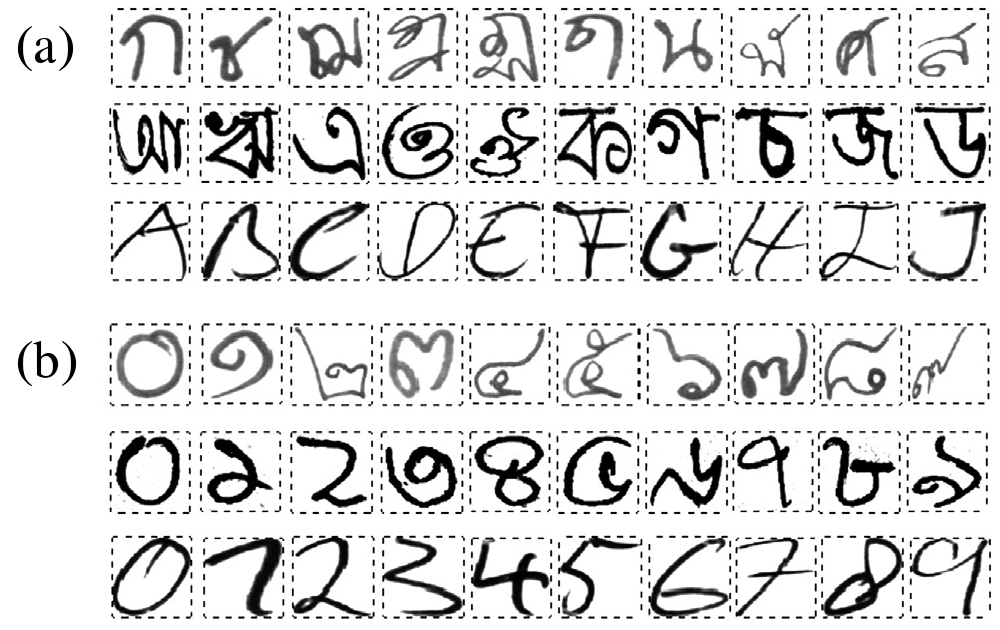 (a) ก ช น ฬ ศ ส
আ ঋ এ ও ঔ ক গ চ জ ড
A B C D E F G H I J
(b) ๐ ๑ ๒ ๓ ๔ ๕ ๖ ๗ ๘ ๙
০ ১ ২ ৩ ৪ ৫ ৬ ৭ ৮ ৯
0 1 2 3 4 5 6 7 8 9